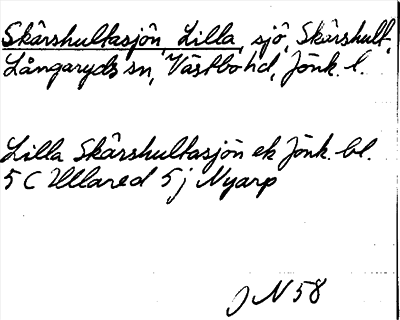 Skårshultasjön, Lilla, sjö, Skårshult,
Långaryds sn, Västbo hd, Jönk. l.
Lilla Skårshultasjön ek Jönk. bl.
5 C Ullared 5 j Nyarp
J N 58